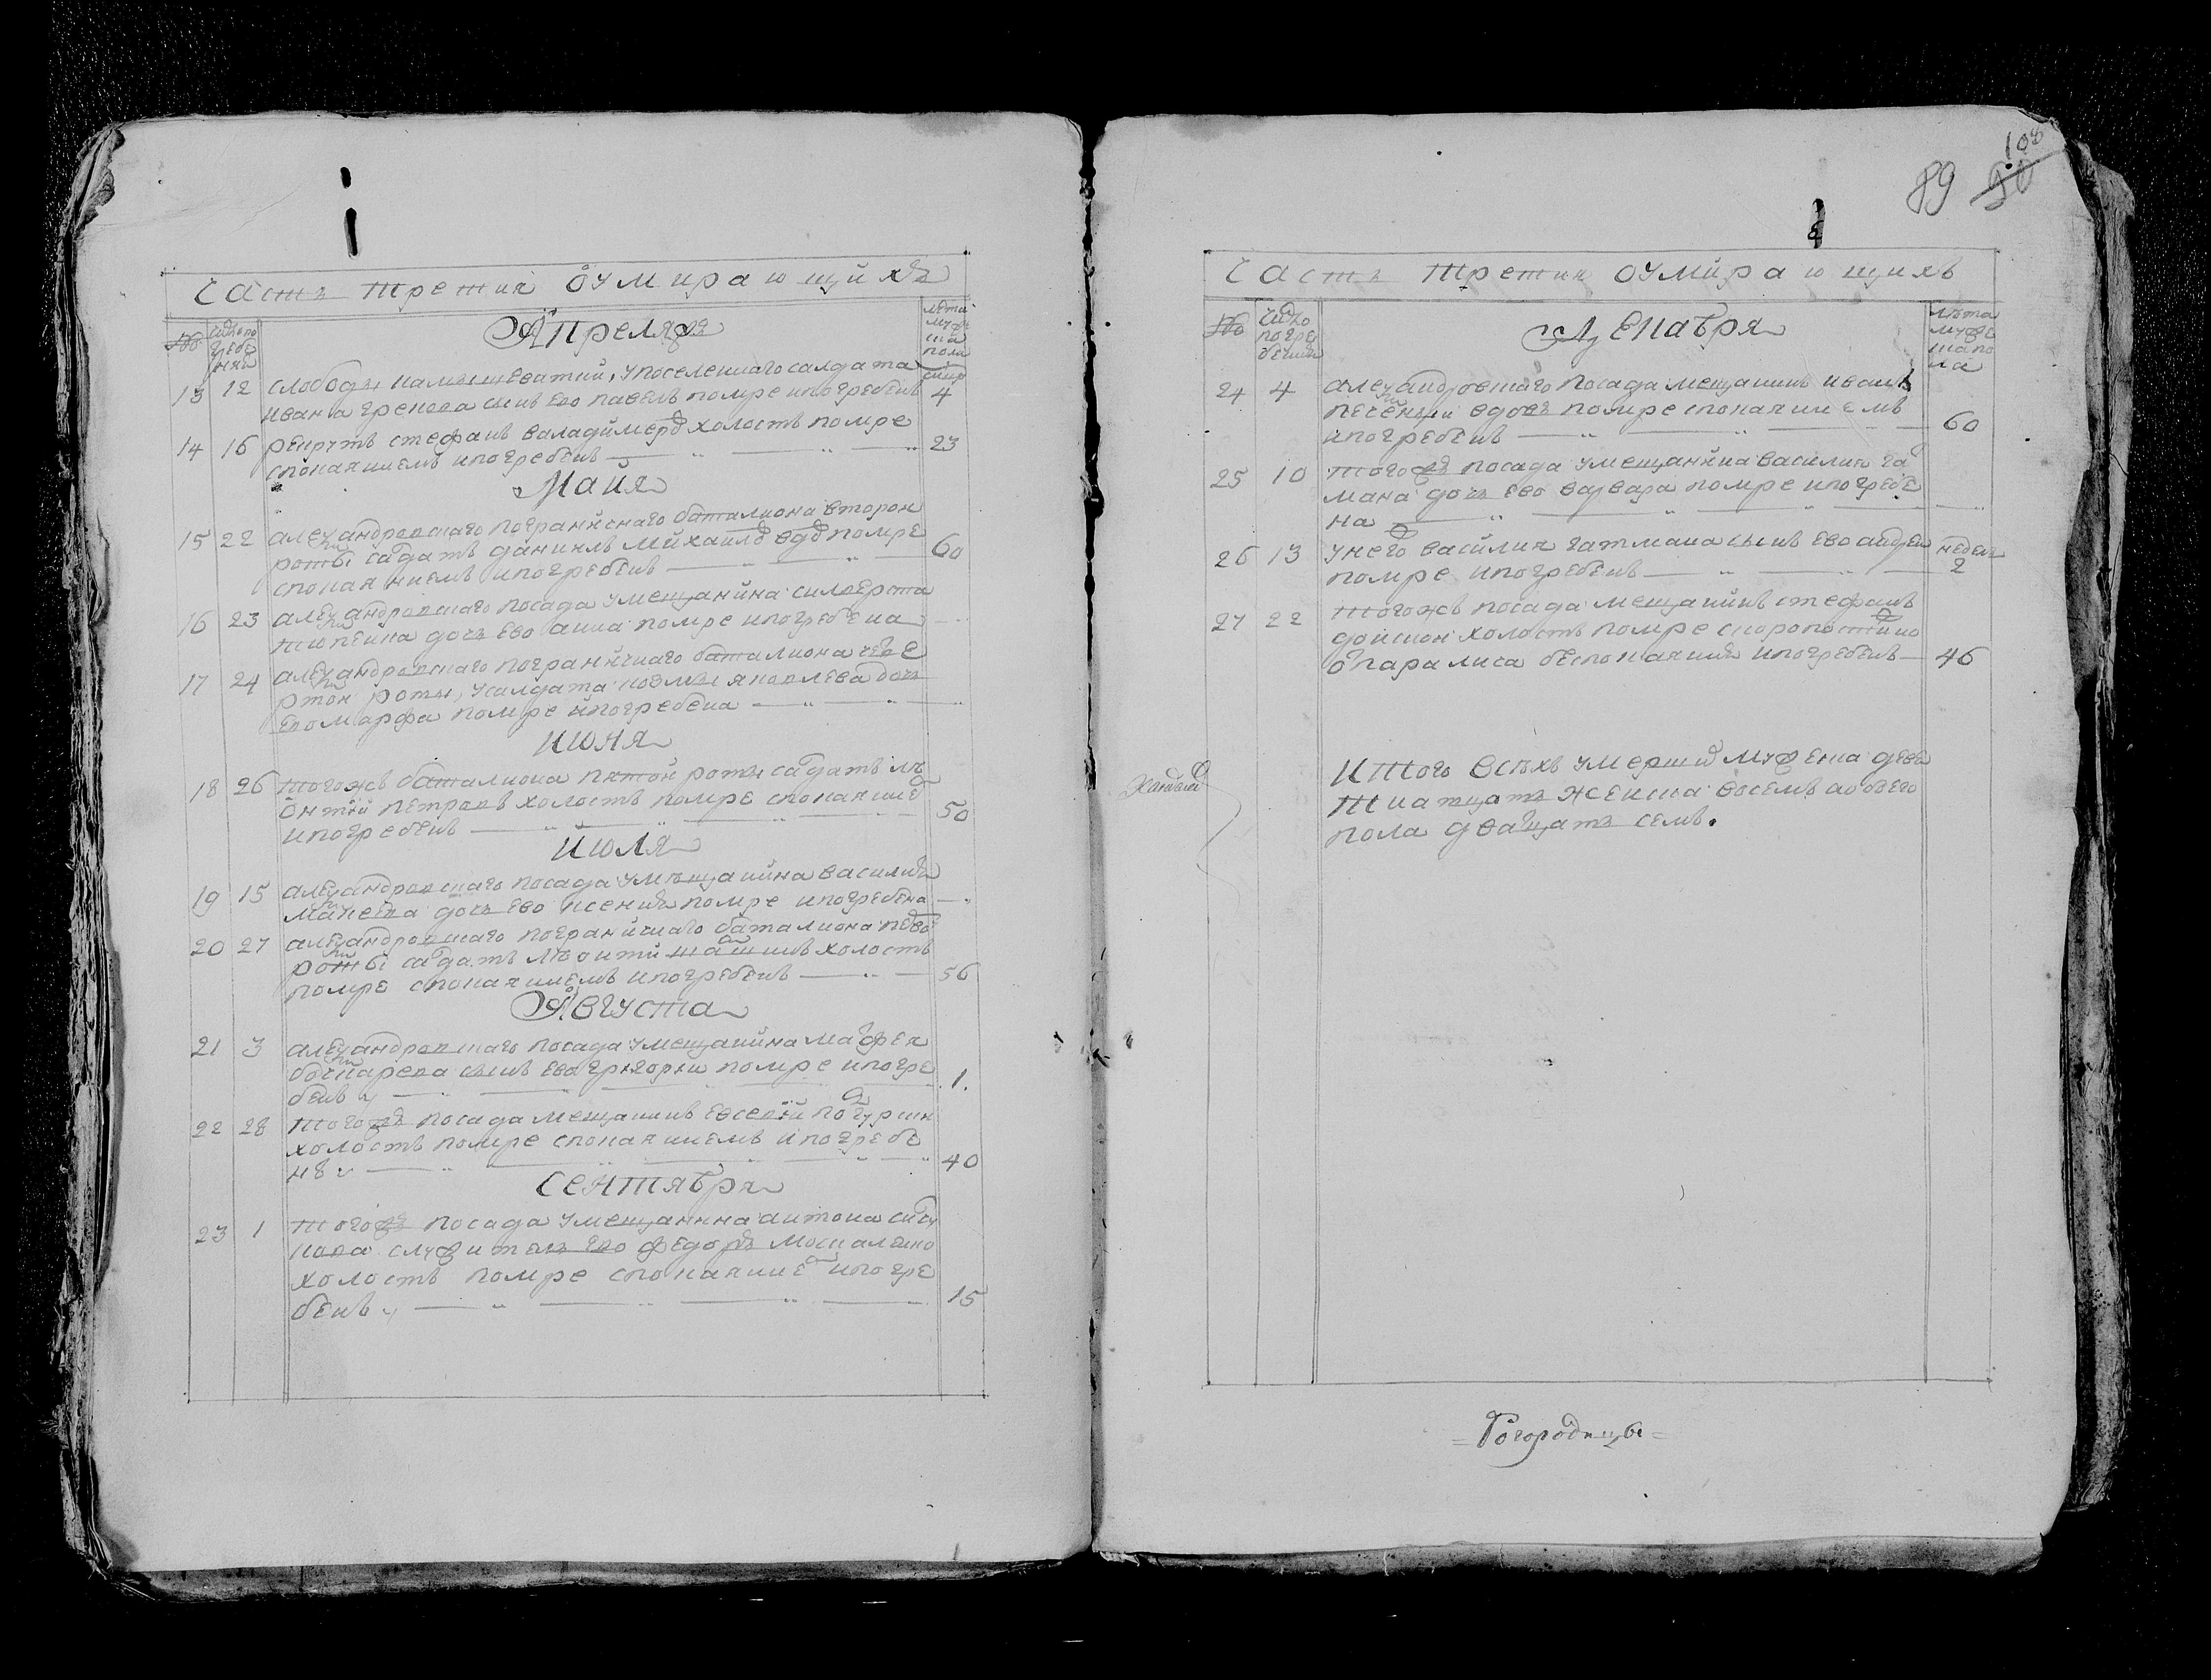 Часть третия оумирающихъ
Апреля
число погребения
лета мужеска пола
13 12 слободы Камышеватки, упоселеннаго салдата
Ивана сынъ ево Павелъ помре ипогребенъ 4
14 16 рекрутъ Стефанъ Валадимеръ холостъ помре
спокаяниемъ ипогребенъ 23
Майя
15 22 александровскаго пограничнаго баталиона второй
роты салдатъ Даниилъ Михайло вдовъ помре
спокаяниемъ ипогребенъ 60
16 23 александровскаго посада умещанина Силверста
дочь ево анна помре ипогребена
17 24 александровскаго пограничнаго баталиона четве
ртой роты, усалдата козмы яковлева дочь
ево марфа помре ипогребена
июня
18 26 тогожъ баталиона пятой роты салдатъ лѣ
онтий петровъ холостъ помре спокаяние
ипогребенъ 50
июля
19 15 александровскаго посада умѣщанина василия
дочь ево ксения помре ипогребена
20 27 александровскаго пограничнаго баталиона перво
роты салдатъ лѣонтий холостъ
помре спокаяниемъ ипогребенъ 56
Августа
21 3 александровскаго посада умещанина матфея
бочкарева сынъ ево григорий помре ипогре
бенъ 1.
22 28 тогожъ посада мещанинъ евсевий
холостъ помре спокаяниемъ ипогребе
нъ 40
Сентября
23 1 тогожъ посада умещанина антона
служитель ево федоръ москаленко
холостъ помре спокаяние ипогре
бенъ 15
108
89 90
Часть третия оумирающихъ
число погребения
Декабря
лѣта мужеска пола
24 4 александровскаго посада мещанинъ иванъ
печеный вдовъ помре спокаяниемъ
ипогребенъ 60
25 10 тогожъ посада умещанина василия га
мана дочь ево варвара помре ипогребе
на
26 13 унего василия гатмана сынъ ево андрей недель
помре ипогребенъ 2
27 22 тогожъ посада мещанинъ стефанъ
холостъ помре скоропостижно
отпаралиса беспокаяния ипогребенъ 46
итого всѣхъ умерших мужеска девя
тнатцать женска восемъ аобоего
пола дватцать семъ.
=Богородицы=